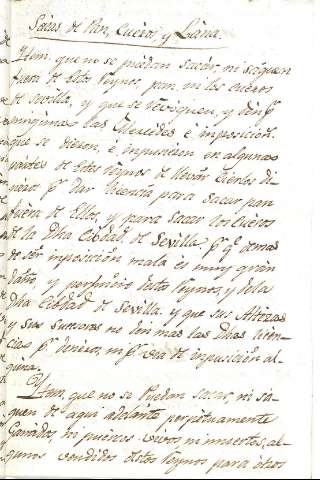 Sacas de Pan, Cueros, y Lana.
Ytem. que no se puedan sacar, ni saquen
fuera de estos Reynos, pan, ni los cueros
de Sevilla, y que se revoquen, y den pr
ningunas las Mercedes é imposicion.
que se dieron, é impusieron en algunas
partes de estos Reynos de llevar ciertos di-
neros pr dar licencia para sacar pan
fuera de Ellos, y para sacar los cueros
de la Dha Ciudad de Sevilla. pr qe demas
de ser imposicion mala es muy gran
daño, y perjuicio destos Reynos, y de la
Dha Ciudad de Sevilla. y que sus Altezas
y sus Subcesores no den mas las Dhas licen-
cias pr dinero, ni pr via de imposicion al-
guna.
Ytem, que no se puedan sacar, ni sa-
quen de aqui adelante perpetuamente
Ganados, ni puercos vivos ni muertos, al-
gunos vendidos destos Reynos para otros